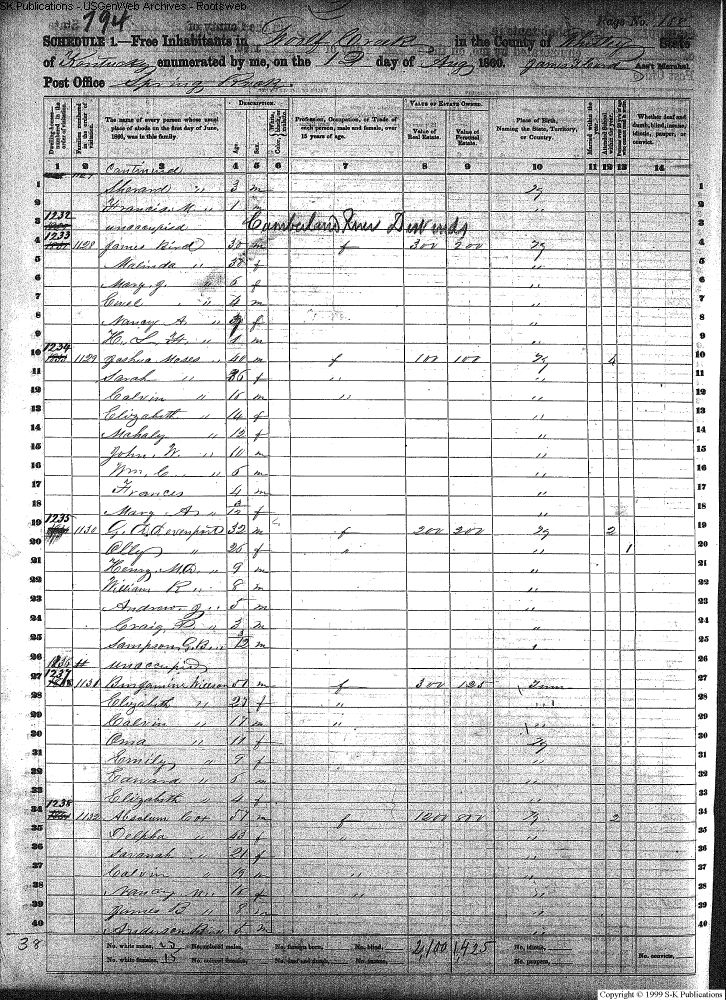 S-K Publications - USGenWeb Archives - Rootsweb
794
Page No. 188
SCHEDULE 1.—Free Inhabitants in Woolf Creek in the County of Whitley State
of Kentucky enumerated by me, on the 13 day of Aug 1860. Ass't Marshal.
Post Office Spring
DESCRIPTION. VALUE OF ESTATE OWNED.
Dwelling-houses—numbered in the order of visitation.
Families numbered in the order of visitation.
The name of every person whose usual place of abode on the first day of June, 1860, was in this family.
Age. Sex. Color,
Profession, Occupation, or Trade of each person, male and female, over 15 years of age.
Value of Real Estate. Value of Personal Estate.
Place of Birth, Naming the State, Territory, or Country.
Married within the year.
Whether deaf and dumb, blind, insane, idiotic, pauper, or convict.
1 2 3 4 5 6 7 8 9 10 11 12 13 14
1127 Continued
1 Sherard " 3 m Ky
2 Francis M " 1 m "
3 1232 unoccupied Cumberland River Dist ends
4 1233 1128 James Kind 30 m f 300 200 Ky
5 Malinda " 30 f "
6 Mary J. " 6 f "
7 " 4 m "
8 Nancy A. " f "
9 " 1 m "
10 1234 1129 Joshua Moses " 40 m f 100 100 Ky 4
11 Sarah " 36 f " "
12 Calvin " 16 m " "
13 Elizabeth " 14 f "
14 Mahaly " 12 f "
15 John W. " 10 m "
16 Wm. C. " 6 m "
17 Francis 4 m "
18 Mary A. " f "
19 1235 1130 G. Devenport 32 m f 200 200 Ky 2
20 Olly " 26 f " " 1
21 Henry " 9 m "
22 William R " 8 m "
23 Andrew J " 5 m "
24 Craig " 3 m "
25 Sampson G.B. " m "
26 1236 # unoccupied
27 1237 1131 Bengamine Willson 51 m f 300 125 Tenn
28 Elizabeth " 27 f " "
29 Calvin " 17 m " "
30 Oma " 11 f Ky
31 Emily " 9 f "
32 Edward " 6 m "
33 Elizabeth " 4 f "
34 1238 1132 Absolum Cox 51 m f 1200 800 Ky 2
35 Delpha " 43 f " "
36 Savanah " 21 f "
37 Calvin " 19 m " "
38 Nancy M. " 16 f " "
39 James B " 8 m "
40 Anderson " 5 m "
38 No. white males, 25 No. colored males, No. foreign born, No. blind, 2,100 1,425 No. idiotic,
No. white females, 15 No. colored females, No. deaf and dumb, No. insane, No. paupers, No. convicts,
Copyright © 1999 S-K Publications